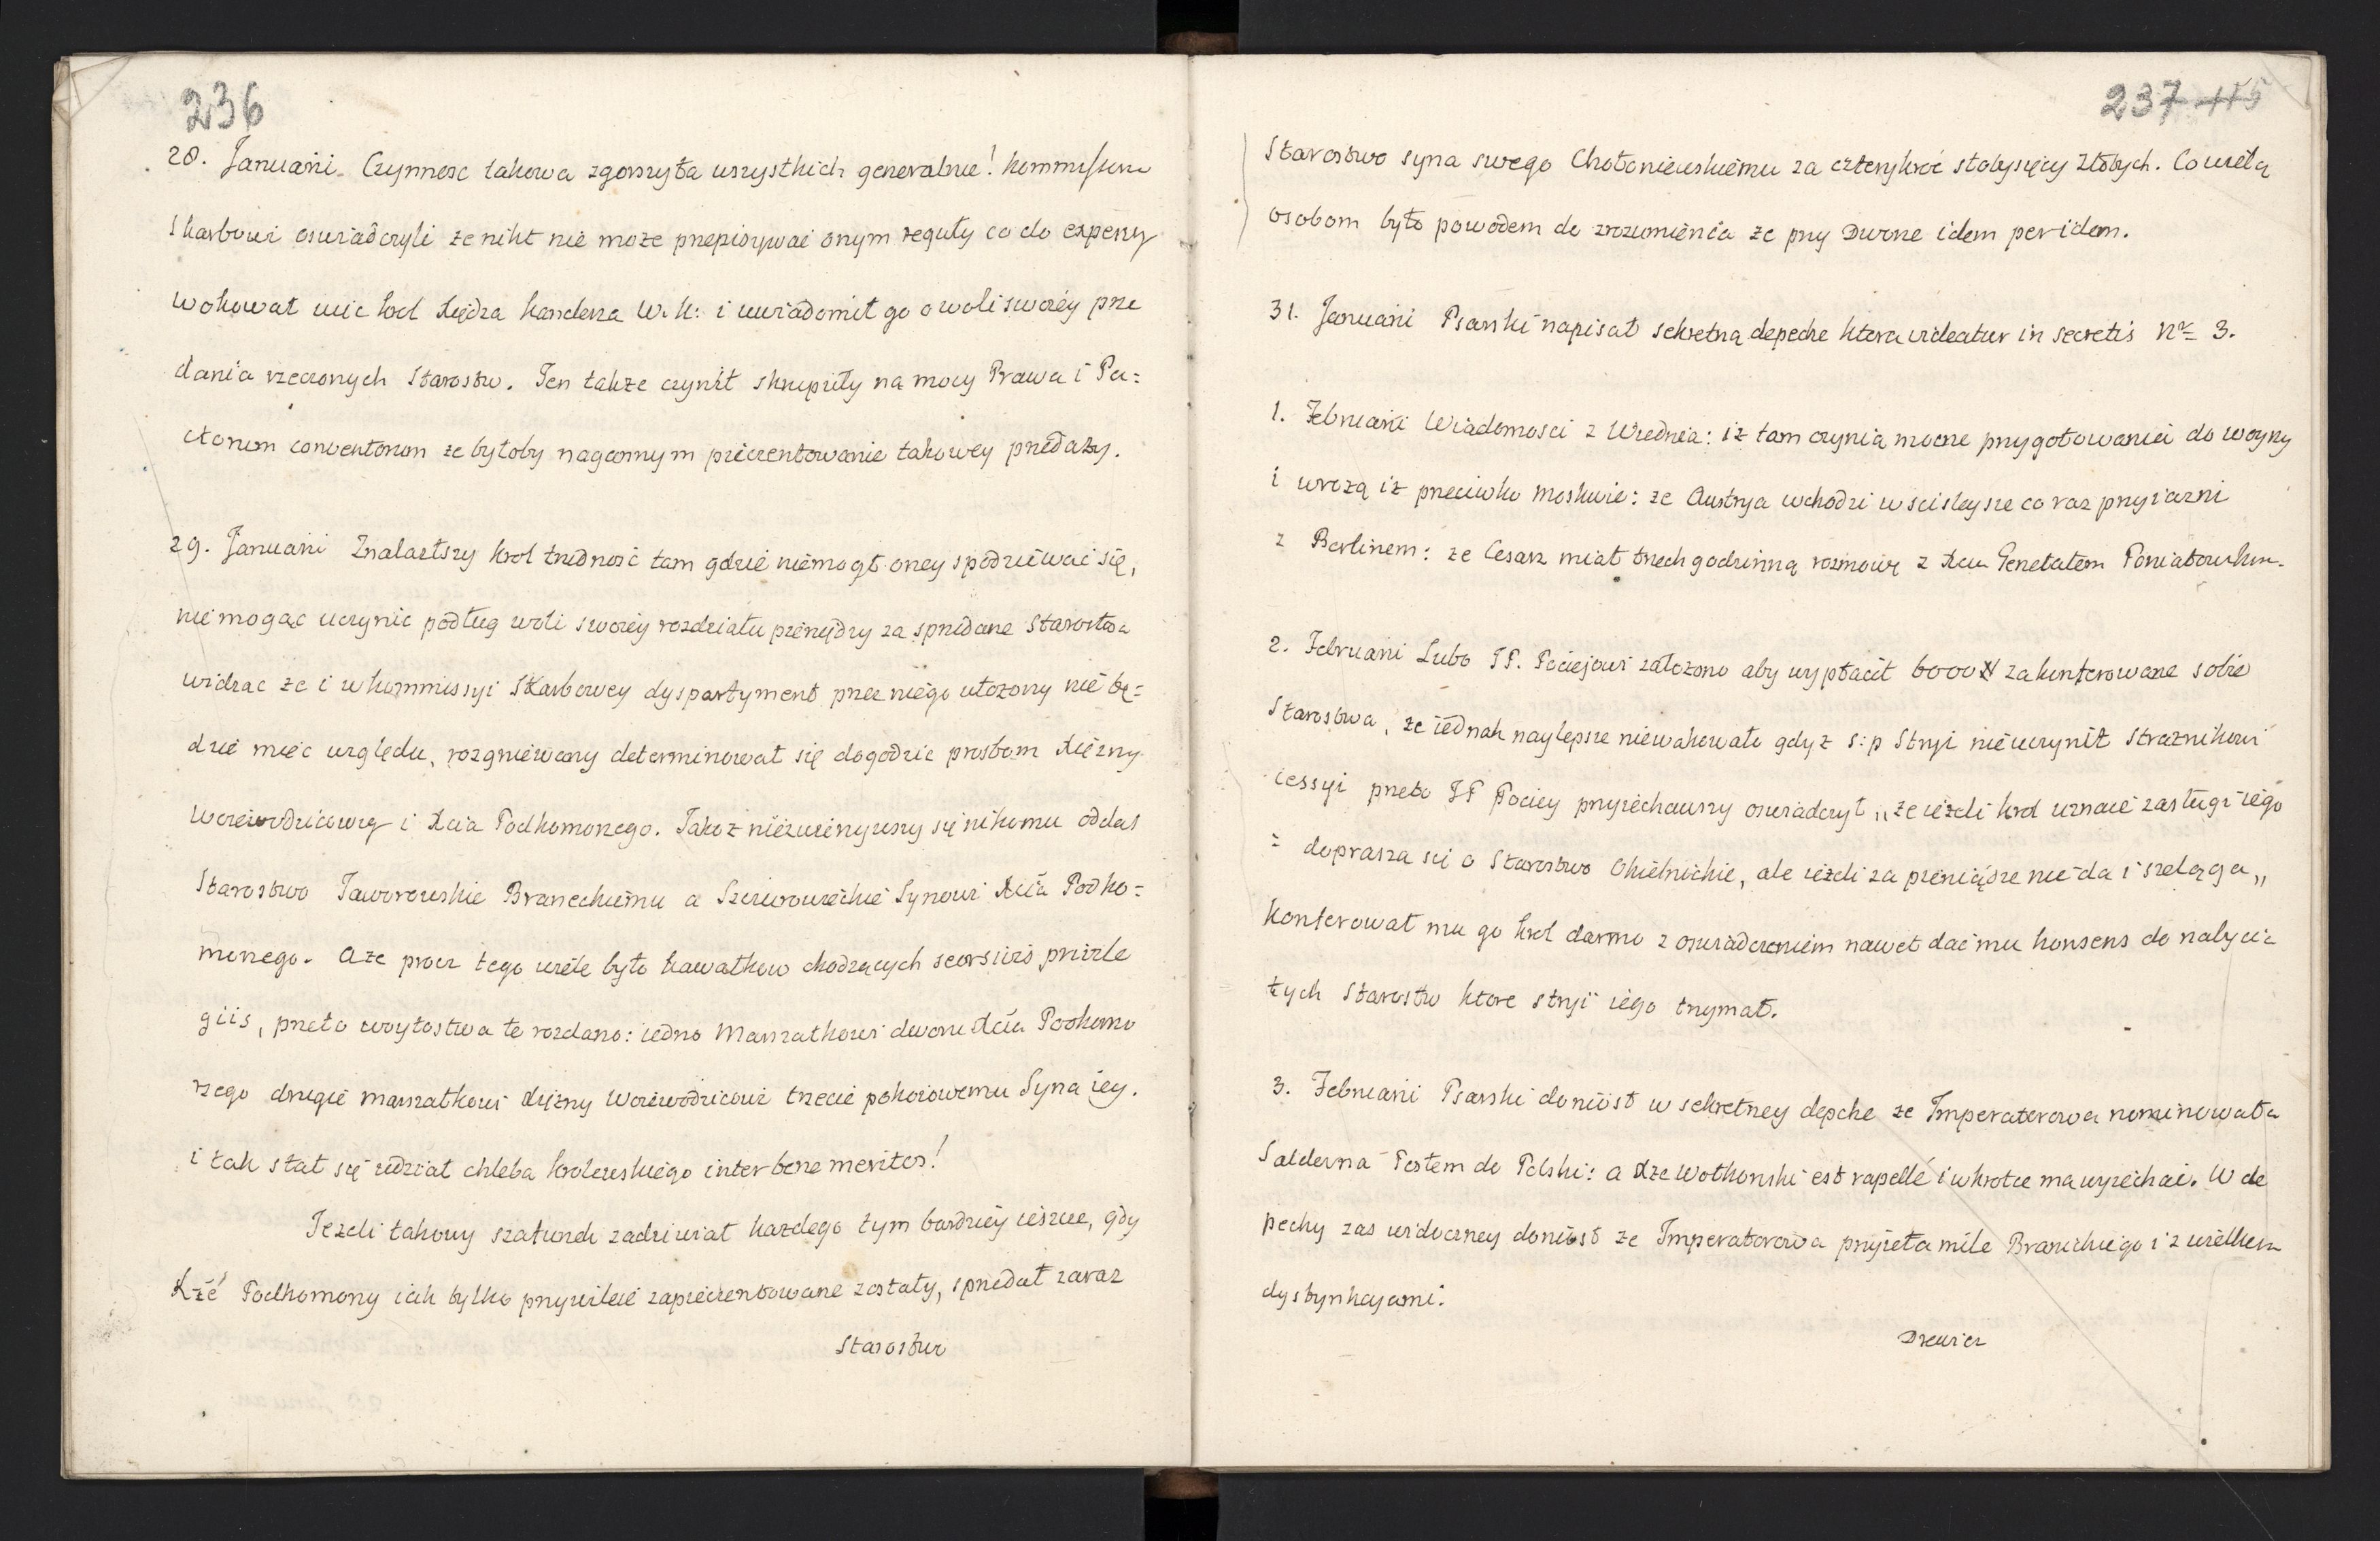 236
28. Januarii. Czynnosc takowa zgorszyła wszystkich generalnie! kommissuni
Skarbowi oswiadczyli ze nikt nie moze przepisywac onym reguły co do expensy
wokował wiec krol Xiędza kanclerza W. K: i uwiadomił go o woli swoiey prze
dania rzeczonych Starostw. Ten takze czynił skrupuły na mocy Prawa i Pa=
ctorum conventorum ze byłoby nagannym pieczentowanie takowey przedaży.
29. Januarii Znalazłszy krol trudność tam gdzie niemogł oney spodziewać się,
nie mogąc uczynic podług woli swoiey rozdziału pieniędzy za sprzedane Starostwa
widząc ze i w kommissyi Skarbowey dyspartyment przez niego ułozony nie bę=
dzie mieć względu, rozgniewany determinował się dogodzić prosbom Xiężny
Woiewodzicowey i Xcia Podkomorzego. Jakoz niezwierzywszy się nikomu oddał
Starostwo Jaworowskie Braneckiemu a Szerewoureckie Synowi Xcia Podko=
morzego. A ze procz tego wiele było kawałkow chodzących seorsivis privile
giis, przeto woytostwa te rozdano: iedno Marszałkowi dworu Xcia Podkomo
rzego drugie marszałkowi Xiężny Woiewodzicowi trzecie pokoiowemu Syna iey.
i tak stał się udział chleba krolewskiego inter bene meritos!
Jeżeli takowy szafunek zadziwiał kazdego tym bardziey ieszcze, gdy
Xże Podkomorzy iak tylko przywileie zapieczentowane zostały, sprzedał zaraz
Starostwo
237 115
Starostwo syna swego Chołoniewskiemu za czterykroć stotysięcy złotych. Co wielą
osobom było powodem do zrozumienia ze przy Dworze idem per idem.
31. Januarii Psarski napisał sekretną depeche ktora videatur in secretis Nr 3.
1. Februarii Wiadomosci z Wiednia: iz tam czynią mocne przygotowania do woyny
i wrozą iz przeciwko Moskwie: ze Austrya wchodzi w scisleysze co raz przyiazni
z Berlinem: ze Cesarz miał trzechgodzinną rozmowę z Xciu Generałem Poniatowskim.
2. Februarii Lubo JP. Pociejowi załozono aby wypłacił 6000 # za konferowane sobie
Starostwa, ze iednak naylepsze niewakowało gdyz s: p Stryi nieuczynił Straznikowi
cessyi przeto JP Pociey przyiechawszy oswiadczył „ze iezeli krol uznaie zasługi iego
= doprasza się o Starostwo Chielnickie, ale iezeli za pieniądze nie da i szelęga„
konferował mu go krol darmo z oswiadczeniem nawet dać mu konsens do nabycia
tych Starostw ktore stryi iego trzymał.
3. Februarii Psarski doniosł w sekretney depche ze Imperatorowa nominowała
Salderna Posłem do Polski: a Xze Wołkonski est rapellé i wkrotce ma wyiechać. W de
pechy zas widoczney doniosł ze Imperatorowa przyieła mile Branickiego i z wielkiem
dystynkcyami.
Drewicz